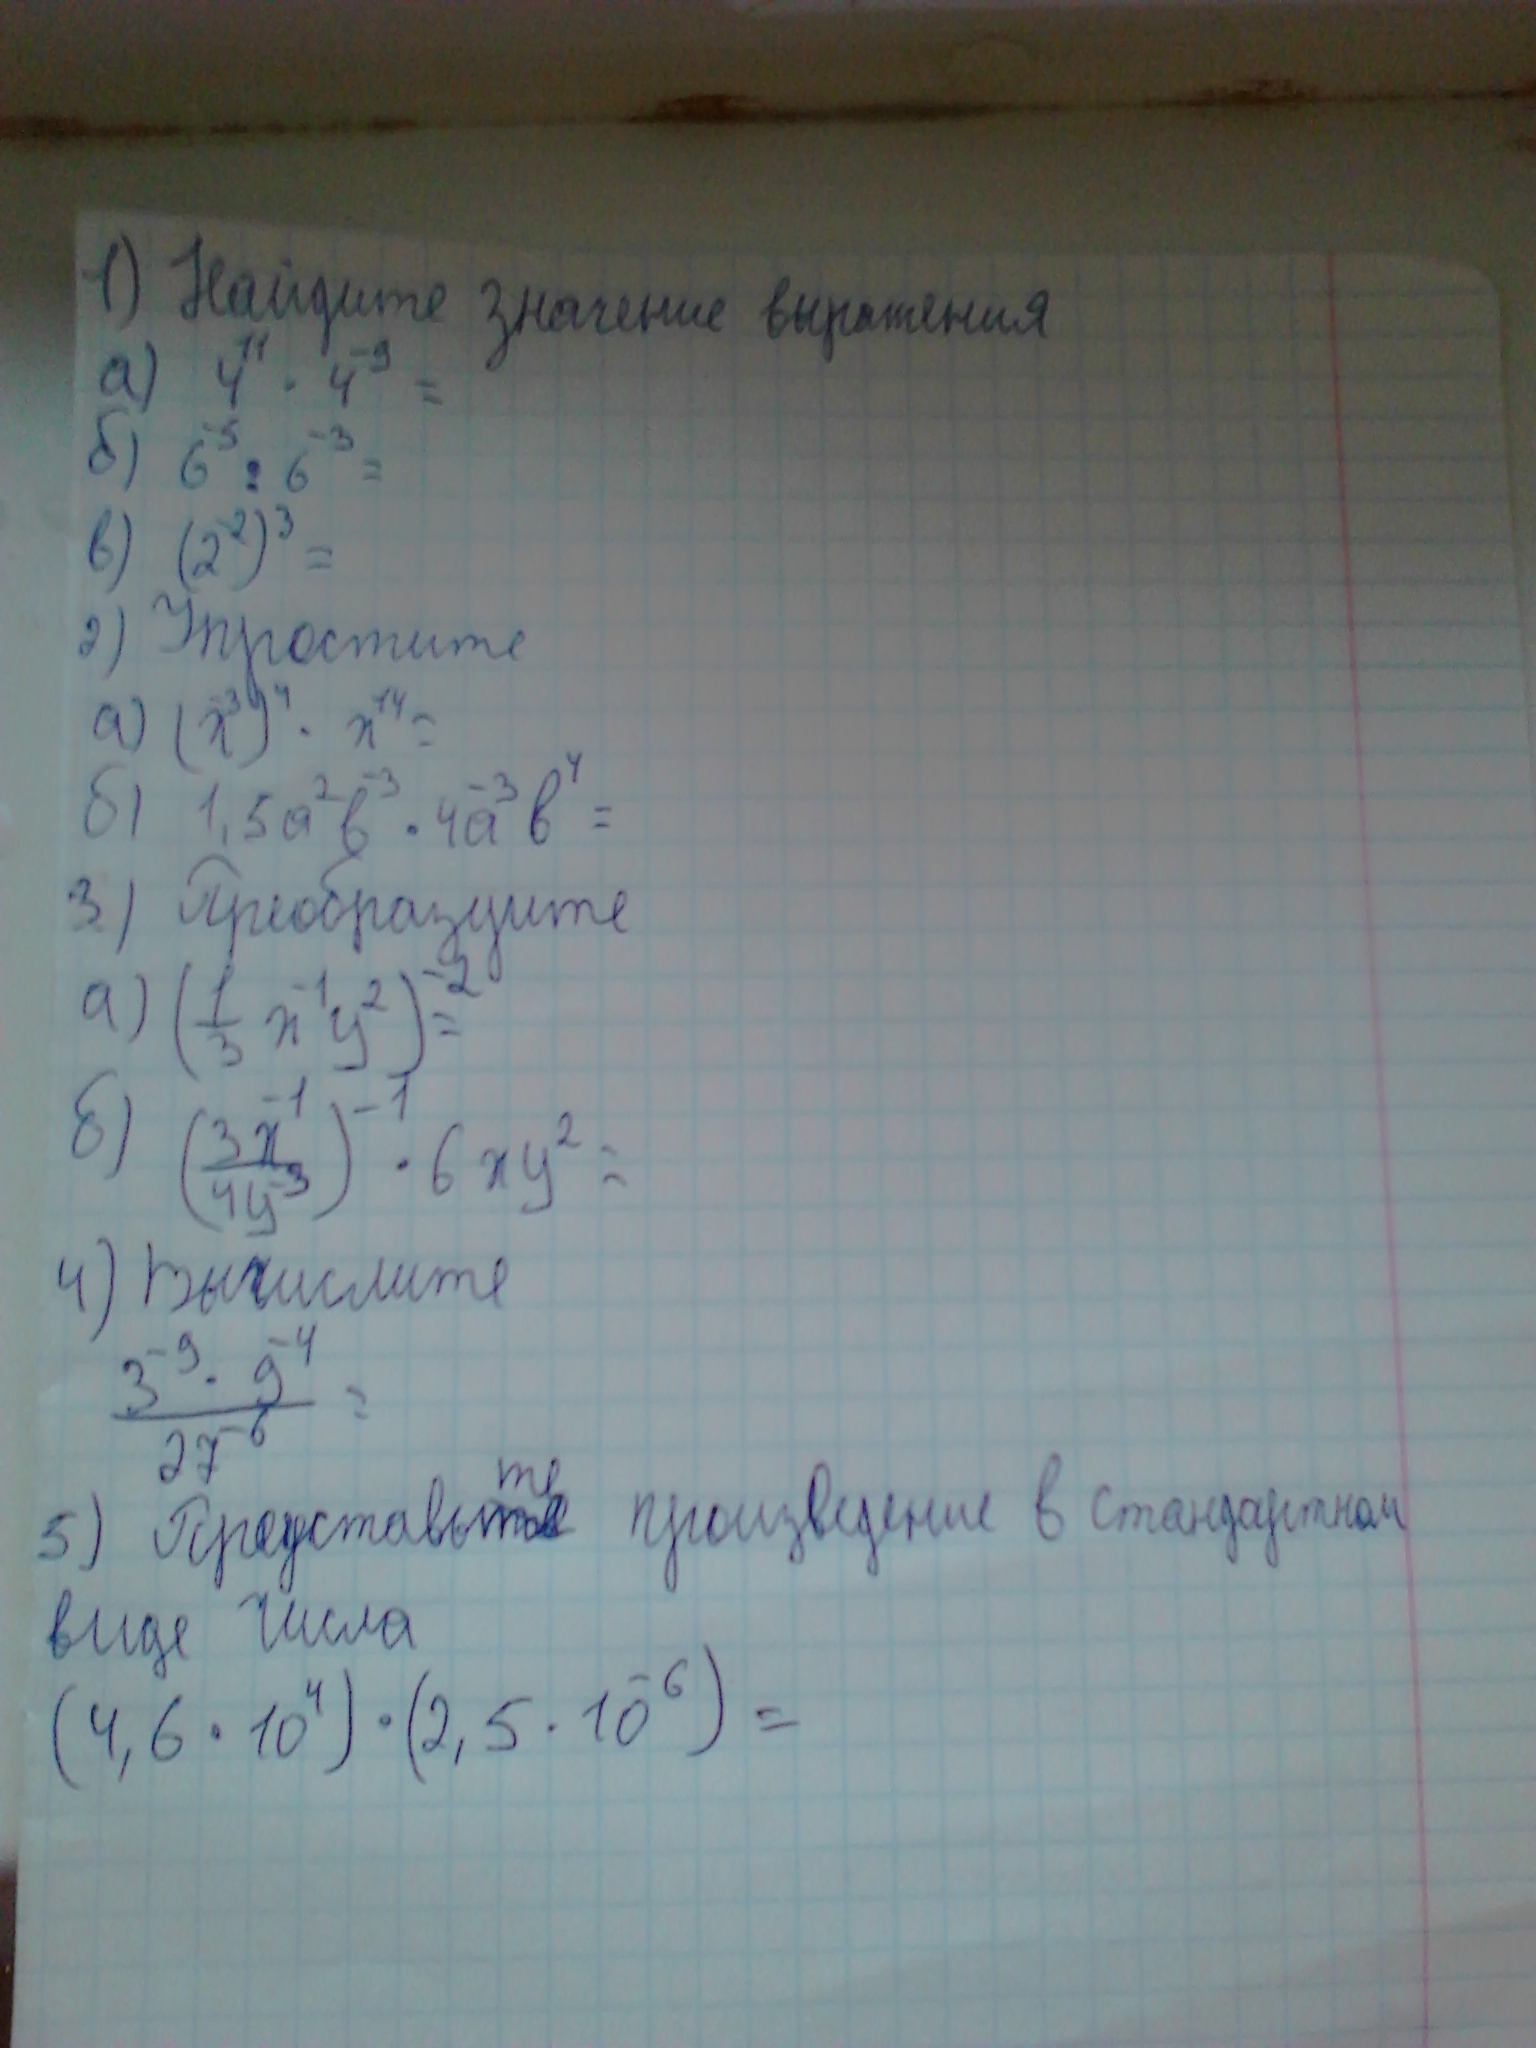 1) Найдите значение выражения
а) 4¹¹ · 4⁻⁹ =
б) 6⁻⁵ : 6⁻³ =
в) (2⁻²)³ =
2) Упростите
а) (x⁻³)⁴ · x¹⁴ =
б) 1,5a²b⁻³ · 4a⁻³b⁴ =
3) Преобразуйте
а) (1/3 x⁻¹y²)⁻² =
б) (3x⁻¹/4y⁻³)⁻¹ · 6xy² =
4) Вычислите
3⁻⁹ · 9⁻⁴ / 27⁻⁶ =
5) Представьте произведение в стандартном
виде числа
(4,6 · 10⁴) · (2,5 · 10⁻⁶) =